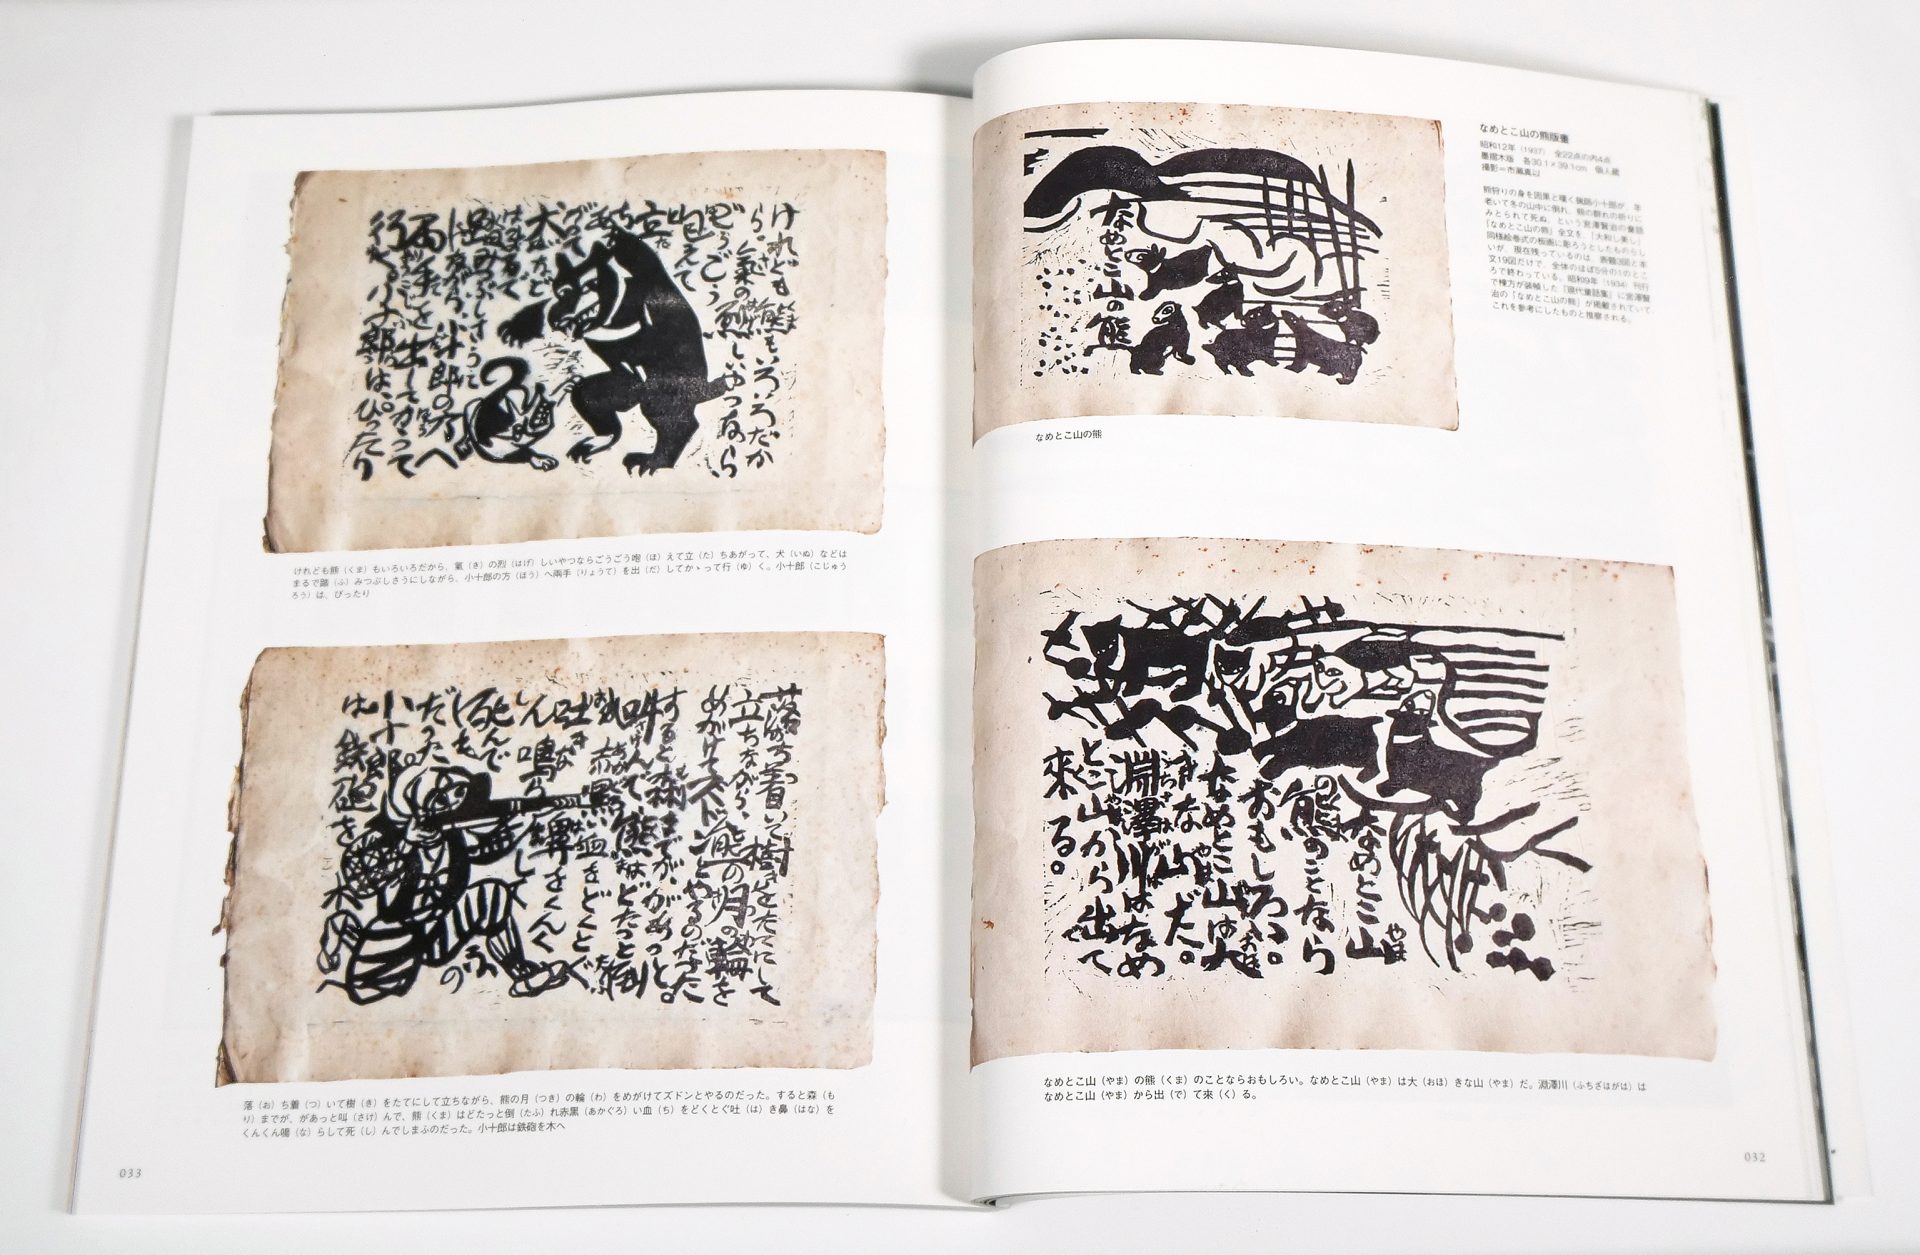 なめとこ山の熊版畫
昭和12年（1937）　全22点の内4点
墨摺木版　各30.1×39.1cm　個人蔵
撮影＝市瀬真以
熊狩りの身を因果と嘆く猟師小十郎が、年
老いて冬の山中に倒れ、熊の群れの祈りに
みとられて死ぬ、という宮澤賢治の童話
「なめとこ山の熊」全文を、「大和し美し」
同様絵巻式の板画に彫ろうとしたものらし
いが、現在残っているのは、表題3図と本
文19図だけで、全体のほぼ5分の1のとこ
ろで終わっている。昭和9年（1934）刊行
で棟方が装幀した『現代童話集』に宮澤賢
治の「なめとこ山の熊」が掲載されていて
これを参考にしたものと推察される。
なめとこ山の熊
なめとこ山の熊
なめとこ山
の熊のことなら
おもしろい。
なめとこ山は大
きな山だ。
淵澤川はなめ
とこ山から出て
來る。
なめとこ山（やま）の熊（くま）のことならおもしろい。なめとこ山（やま）は大（おほ）きな山（やま）だ。淵澤川（ふちざはがは）は
なめとこ山（やま）から出（で）て来（く）る。
032
けれども熊もいろいろだか
ら。氣の烈しいやつなら
ごうごう
咆えて
立ち
あがつて
犬などは
まるで
踏みつぶしさうに
しながら、小十郎の方へ
兩手を出してかゝつて
行く。小十郎は、ぴつたり
けれども熊（くま）もいろいろだから、氣（き）の烈（はげ）しいやつならごうごう咆（ほ）えて立（た）ちあがって、犬（いぬ）などは
まるで踏（ふ）みつぶしさうにしながら、小十郎の方（ほう）へ兩手（りょうて）を出（だ）してかゝって行（ゆ）く。小十郎（こじゅう
ろう）は、ぴったり
落ち着いて樹をたてにして
立ちながら、熊の月の輪を
めがけてズドンとやるのだつた
すると森までが、があつと。
叫んで、熊はどたつと倒
れ赤黒い血をどくどく
吐き鼻をくんく
ん鳴らして
死んで
しまふの
だつた。
小十郎は
鉄砲を
木へ
落（お）ち着（つ）いて樹（き）をたてにして立ちながら、熊の月（つき）の輪（わ）をめがけてズドンとやるのだった。すると森（も
り）までが、があっと叫（さけ）んで、熊（くま）はどたっと倒（たふ）れ赤黒（あかぐろ）い血（ち）をどくとぐ吐（は）き鼻（はな）を
くんくん鳴（な）らして死（し）んでしまふのだった。小十郎は鉄砲を木へ
033